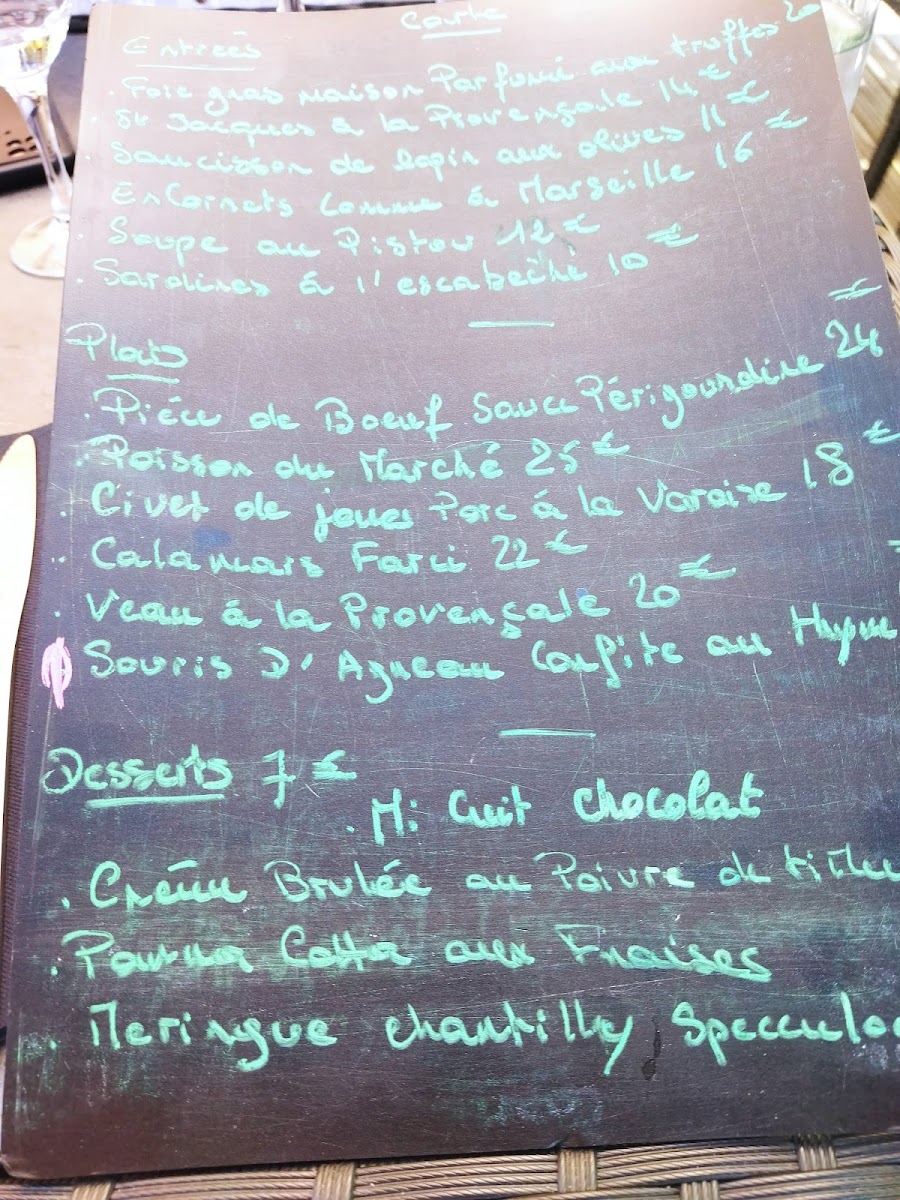 Carte
Entreés
. Foie gras maison Parfumé aux truffes 20
. St Jacques à la Provençale 14 €
. Saucisson de lapin aux olives 11 €
Encornets comme à Marseille 16 €
. Soupe au Pistou 12 €
. Sardines à l'escabeche 10 €
Plats
. Piéce de Boeuf Sauce Périgourdine 24 €
. Poisson du Marché 25 €
. Civet de joues Porc à la Varoise 18 €
. Calamars Farci 22 €
. Veau à la Provençale 20 €
. Souris D'Agneau Confite au Thym
Desserts 7 €
. Mi Cuit Chocolat
. Crème Brulée au Poivre de
. Panna Cotta aux Fraises
. Meringue chantilly Speculoo